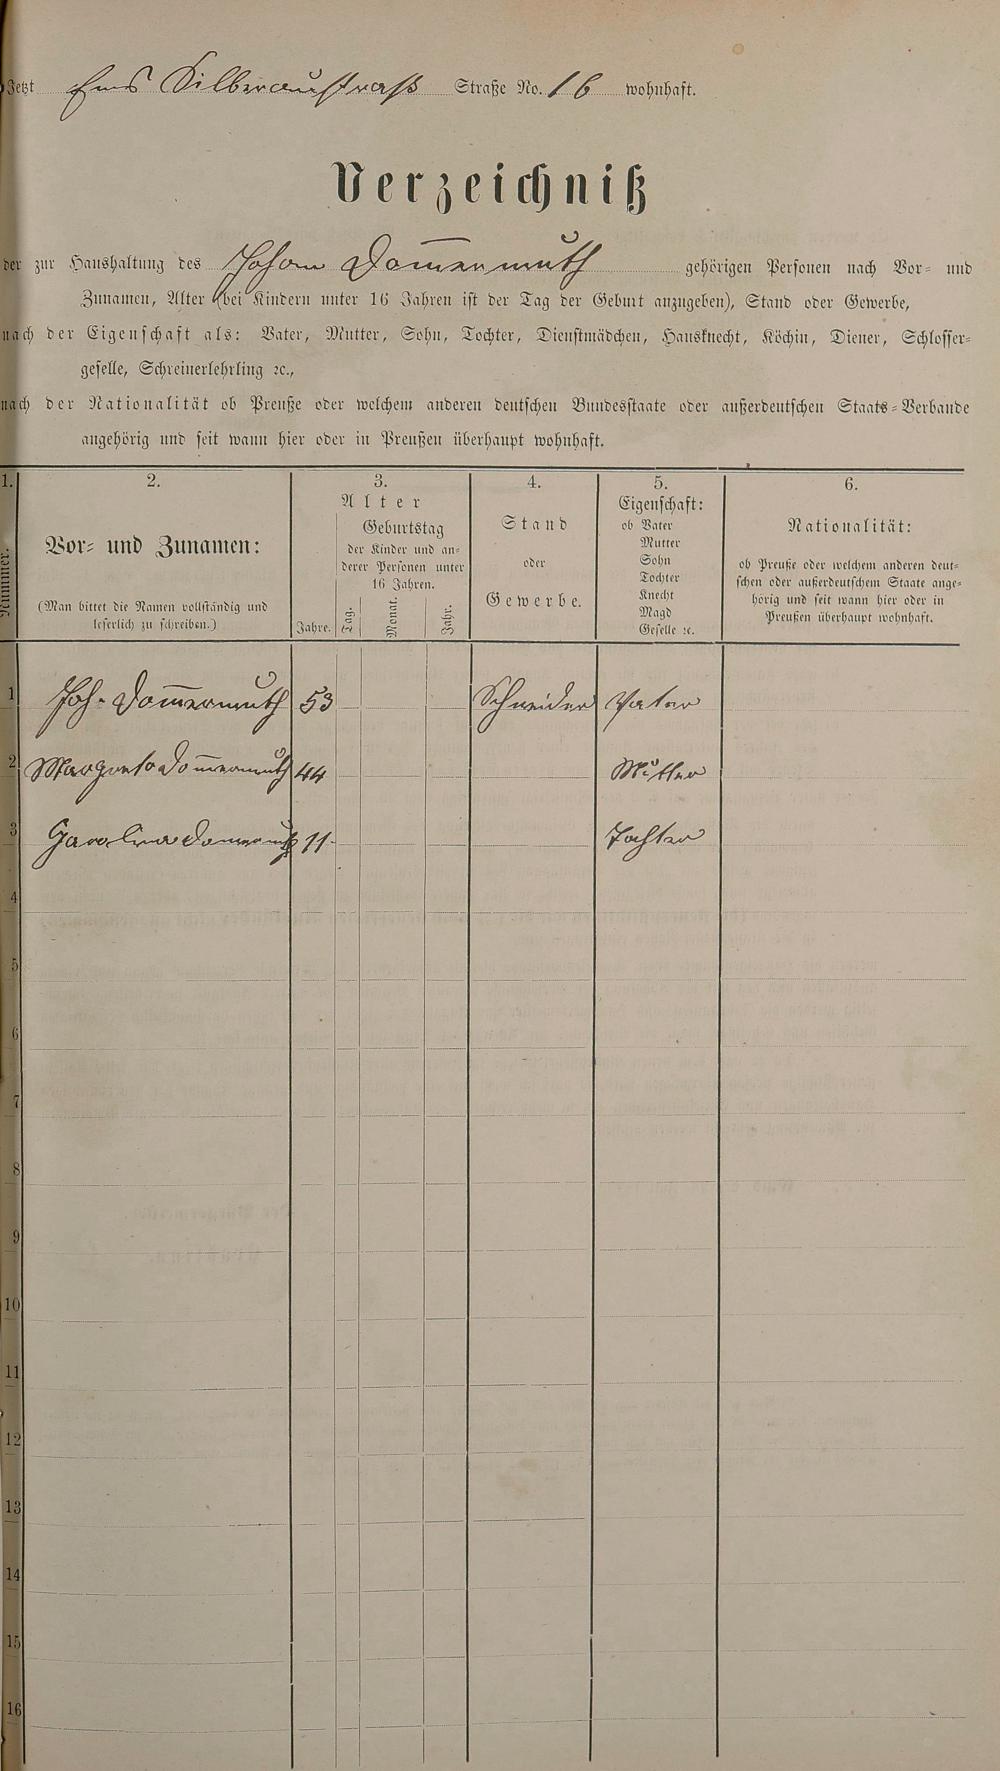 Jetzt Ems Silberaustraß Straße No. 16 wohnhaft.
Verzeichniß
der zur Haushaltung des Johan Dom̅ermuth gehörigen Personen nach Vor- und
Zunamen, Alter (bei Kindern unter 16 Jahren ist der Tag der Geburt anzugeben), Stand oder Gewerbe,
nach der Eigenschaft als: Vater, Mutter, Sohn, Tochter, Dienstmädchen, Hausknecht, Köchin, Diener, Schlosser-
geselle, Schreinerlehrling ꝛc.,
nach der Nationalität ob Preuße oder welchem anderen deutschen Bundesstaate oder außerdeutschen Staats-Verbande
angehörig und seit wann hier oder in Preußen überhaupt wohnhaft.
1.
Nummer.
2.
Vor- und Zunamen:
(Man bittet die Namen vollständig und
leserlich zu schreiben.)
3.
Alter
Jahre.
Geburtstag
der Kinder und an-
derer Personen unter
16 Jahren.
Tag.
Monat.
Jahr.
4.
Stand
oder
Gewerbe.
5.
Eigenschaft:
ob Vater
Mutter
Sohn
Tochter
Knecht
Magd
Geselle ꝛc.
6.
Nationalität:
ob Preuße oder welchem anderen deut-
schen oder außerdeutschem Staate ange-
hörig und seit wann hier oder in
Preußen überhaupt wohnhaft.
1 Joh. Dom̅ermuth 53 Schneider Vater
2 Margreta Dom̅ermuth 44 Mutter
3 Carolina Domermuth 11 Tochter
4
5
6
7
8
9
10
11
12
13
14
15
16